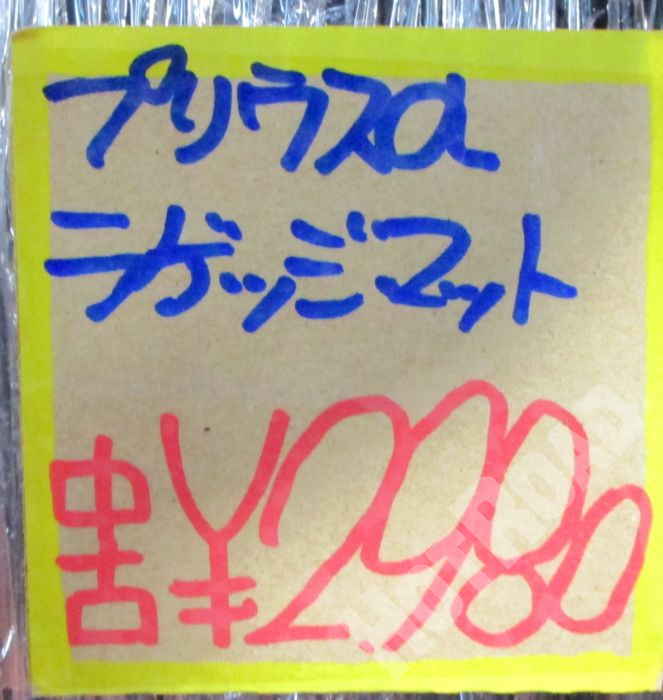 プリウスα
ラゲッジマット
中古 ¥2980
HOT ROAD